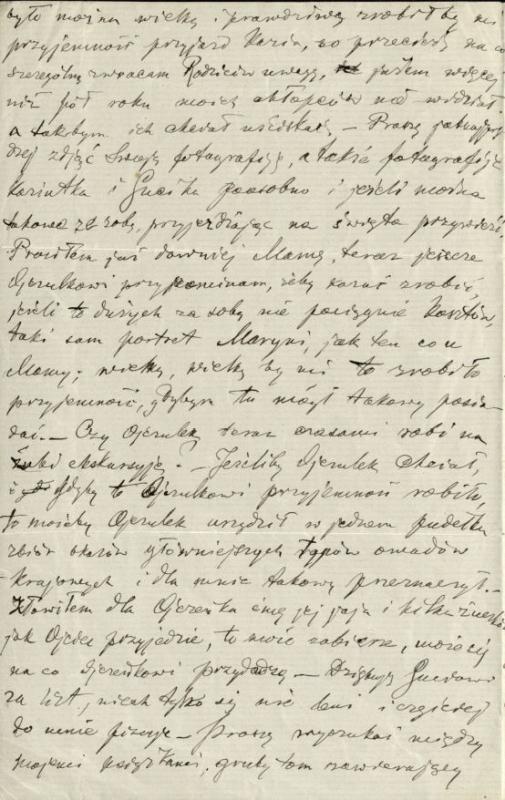 było można wielką i prawdziwą zrobiłby mi
przyjemność przyjazd Kazia, co przecież na co
szczególną zwracam Rodziców uwagę, jużem więcej
niż pół roku moich chłopców nie widział
a takbym ich chciał uściskać, — Proszę
zdjąć swoją fotografiję, a także fotografiję
Kaziutka i Gucika osobno i jeśli można
takowe ze sobą, przyjeżdżając na święta przywieść.
Prosiłem już dawniej Mamę, teraz jeszcze
Ojczulkowi przypominam, żeby kazać zrobić
jeśli to dużych za sobą nie pociągnie kosztów,
taki sam portret Maryni, jak ten co u
Mamy; wielką, wielką by mi to zrobiło
przyjemność, gdybym tu mógł takowy posia-
dać. — Czy Ojczulek teraz czasami robi na
żuki ekskursyję? — Jeśliby Ojczulek chciał,
i gdyby to Ojczulkowi przyjemność robiło,
to możeby Ojczulek urządził w jednem pudełku
zbiór okazów główniejszych typów owadów
krajowych i dla mnie takowy przeznaczył. —
Złowiłem dla Ojczulka ćmę jej jaja i kilka
jak Ojciec przyjedzie, to może zabierze, może się
na co Ojczulkowi przydadzą — Dziękuję Guciowi
za list, niech tylko się nie leni i częściej
do mnie pisuje — Proszę wyszukać między
mojemi książkami, gruby tom zawierający